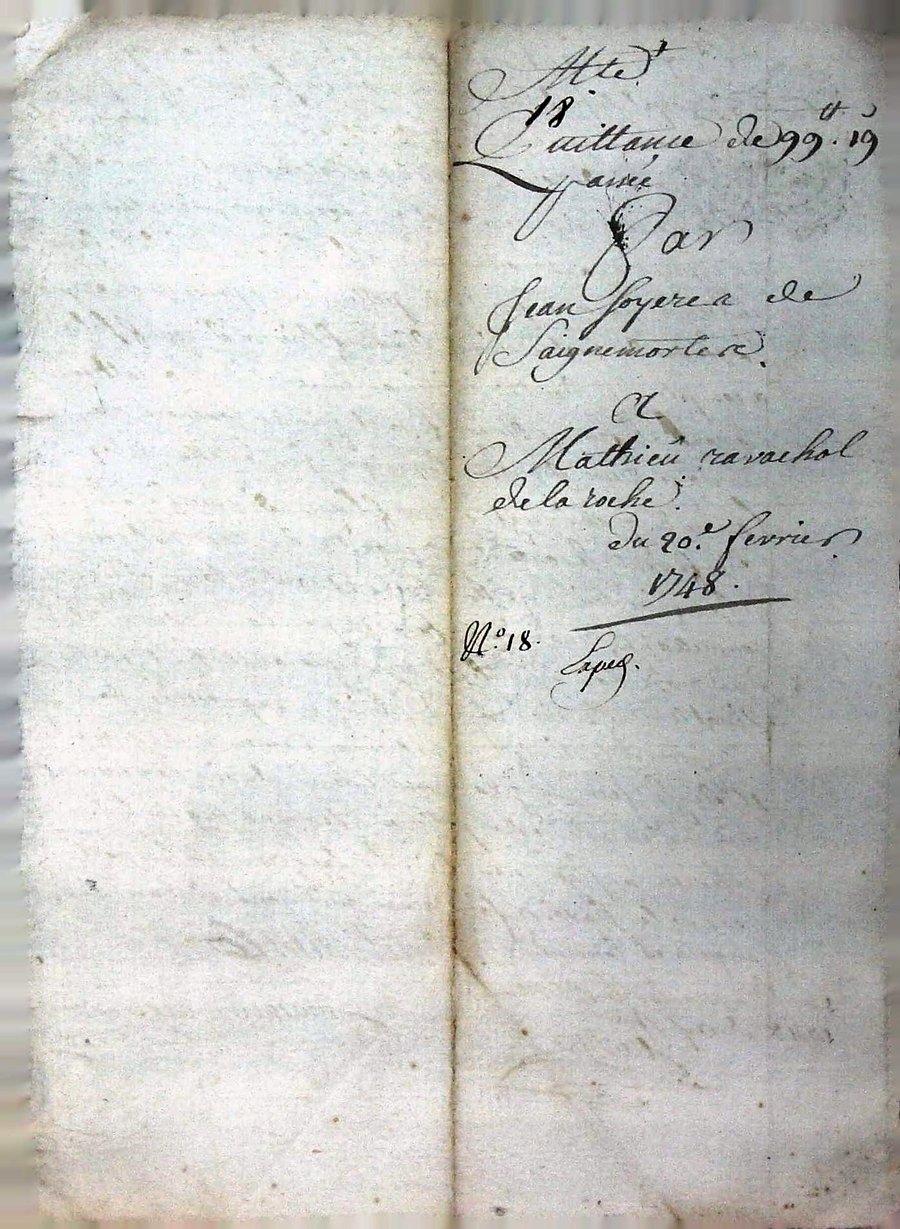 18.
Quittance de 99ᵗᵗ. 19ˢ
passée
Par
Jean Soyere a de
Saignemorte a.
A
Mathieu ravachol
de la roche.
du 20.ᵉ fevrier
1748.
N.º 18.